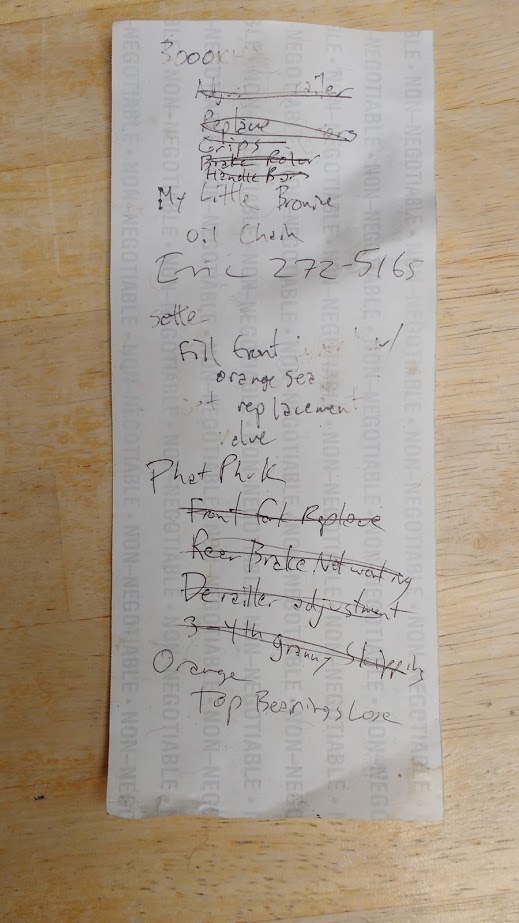 3000
Replace
Grips
Brake Rotor
Handle Bars
My Little Bronie
oil Chain
Eric 272-5165
sette
Fill front w/
orange sea
replacement
valve
Phat Phuk
Front fork Replace
Rear Brake Not working
Derailler adjustment
3-4th granny Skipping
Orange
Top Bearings Lose
NON-NEGOTIABLE • NON-NEGOTIABLE